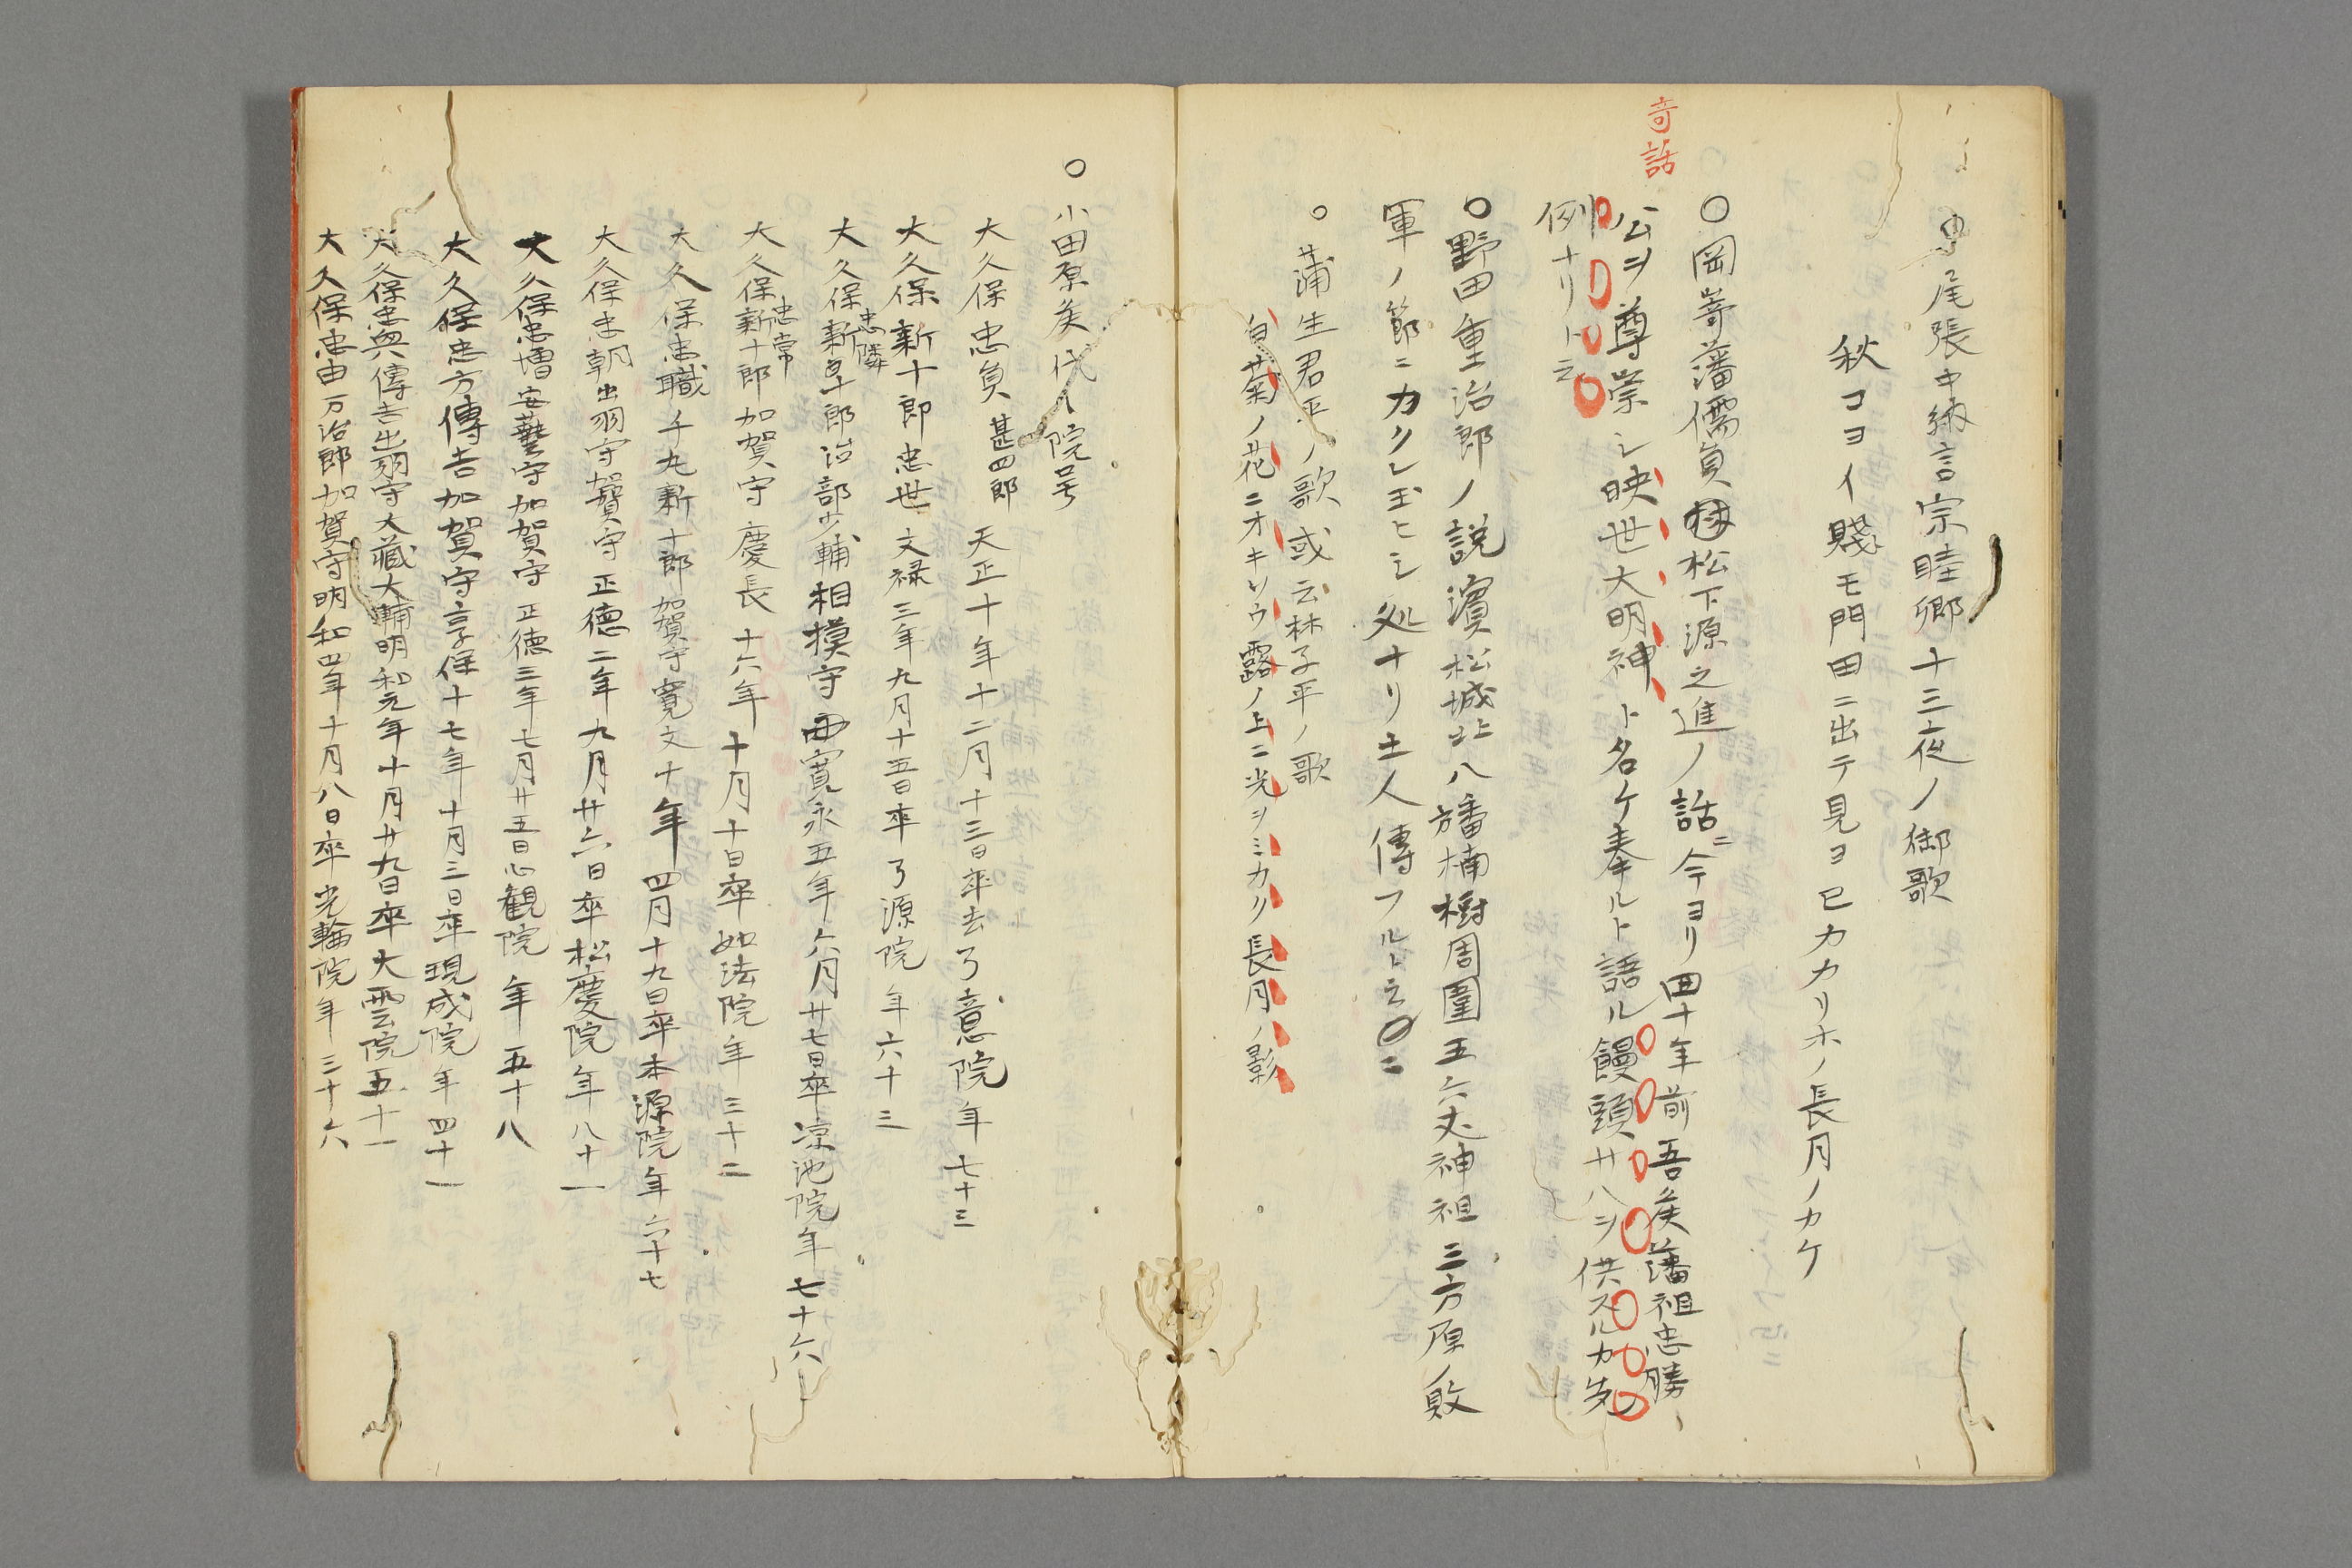 尾張中納言宗睦卿十三夜ノ御歌
秋コヨイ賤モ門田ニ出テ見ヨ已カカリホノ長月ノカケ
奇話
〇岡嵜藩儒員松下源之進ノ話ニ今ヨリ四十年前吾矦藩祖忠勝
公ヲ尊崇シ映世大明神ト名ケ奉ルト語ル饅頭廿八ヲ供スルカ先
例ナリト云
〇野田重治郎ノ説濵松城北八旛楠樹周圍五六丈神祖三方原ノ敗
軍ノ節ニカクレ玉ヒシ処ナリ土人傳フルト云
〇蒲生君平ノ歌或云林子平ノ歌
白菊ノ花ニオキソウ露ノ上ニ光ヲミカク長月ノ影
〇小田原矦代々院号
大久保忠員甚四郎 天正十年十二月十三日卒去了意院年七十三
大久保新十郎忠世文禄三年九月十五日卒了源院年六十三
大久保新十郎忠隣治部少輔相摸守寛永五年六月廿七日卒凉池院年七十六
大久保新十郎忠常加賀守慶長十六年十月十日卒如法院年三十二
大久保忠職千丸新十郎加賀守寛文十年四月十九日卒本源院年六十七
大久保忠朝出羽守加賀守正徳二年九月廿六日卒松慶院年八十一
大久保忠増安藝守加賀守正徳三年七月廿五日心観院年五十八
大久保忠方傳吉加賀守享保十七年十月三日卒現成院年四十一
大久保忠與傳吉出羽守大藏大輔明和元年十月廿九日卒大雲院五十一
大久保忠由万治郎加賀守明和四年十月八日卒光輪院年三十六